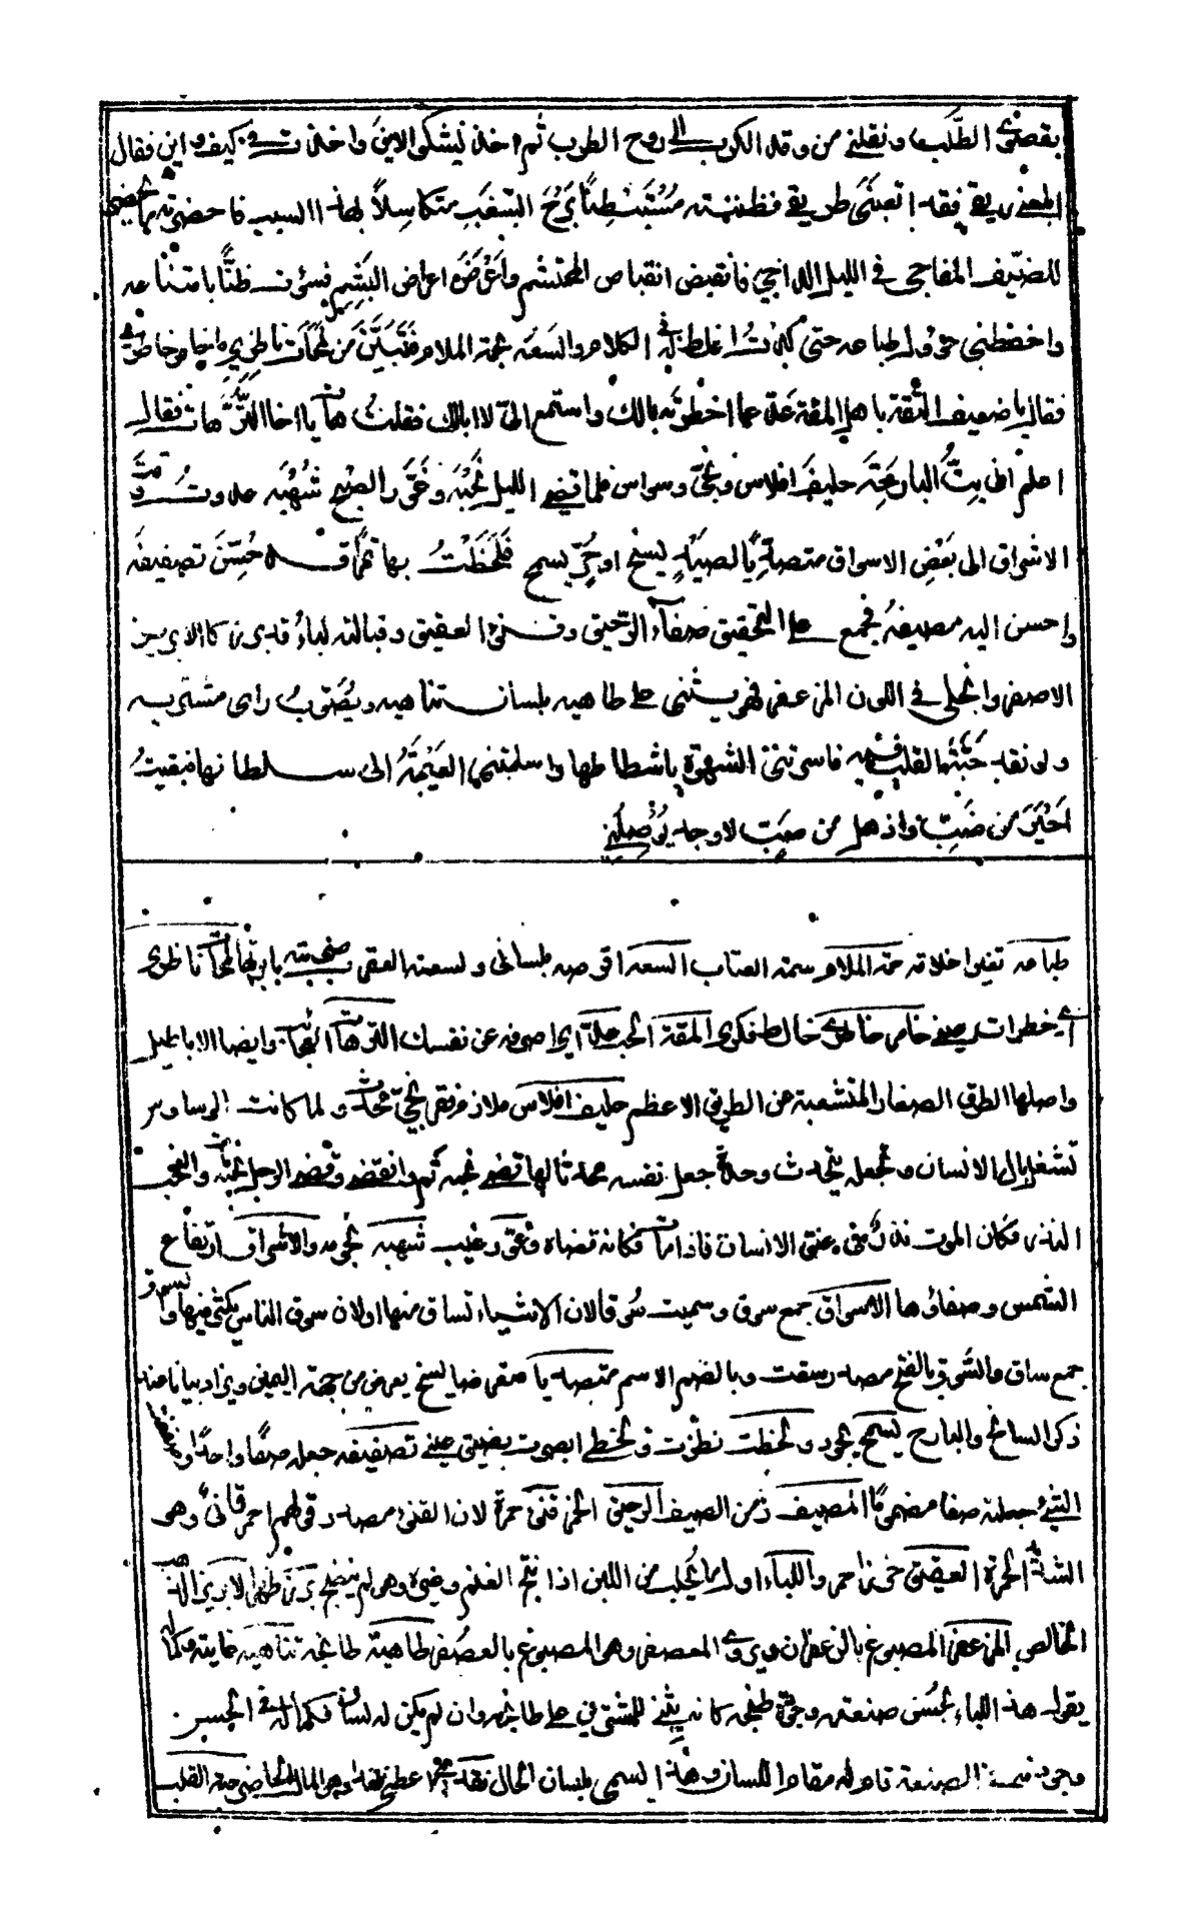 بقصوى الطلب ونقلني من وقد الكرب إلى روح الطرب ثم اخذ يشكو الاين واخذت في كيف واين فقال
ابلعني ريقي فقد اتعبني طريقي فظننته مستبطنا للسغب متكاسلا لهذا السبب فاحضرته ما يحضر
للضيف المفاجي في الليل الداجي فانقبض انقباض المحتشم واعرض اعراض البشم فسؤت ظنا بامتناعه
واحفظني حؤول طباعه حتى كدت اغلظ له في الكلام والسعه بحمة الملام فتبين من لمحات ناظري ما خامر خاطري
فقال يا ضعيف الثقة باهل المقة عد عما اخطرته بالك واستمع الي لا ابا لك فقلت هات يا اخا الترهات فقال
اعلم اني بت البارحة حليف افلاس ونجي وسواس فلما قضى الليل نحبه وغور الصبح شهبه غدوت وقت
الاشراق الى بعض الاسواق متصديا لصيد يسنح او حر يسمح فلحظت بها تمرا قد حسن تصفيفه
واحسن اليه مصيفه فجمع على التحقيق صفاء الرحيق وقنوء العقيق وقبالته لباء قد برز كالابريز
الاصفر وانجلى في اللون المزعفر فهو يثني على طاهيه بلسان تناهيه ويصوب راي مشتريه
ولو نقد حبة القلب فيه فاسرتني الشهوة باشطانها واسلمتني العيمة الى سلطانها فبقيت
احير من ضب واذهل من صب لا وجد يوصلني
طباعه تغير اخلاقه حمة الملام سمة العتاب السعه اقرصه بلساني ولسعته العقرب ضربته بابرتها لمحات ناظري
اي خطرات بصري خامر خاطري خالط فكري المقة الحب عد اي اصرفه عن نفسك الترهات وايضا الاباطيل
واصلها الطرق الصغار المتشعبة عن الطريق الاعظم حليف افلاس ملازم فقر نجي محدث ولما كانت الوساوس
تشغل بال الانسان وتجعله يتحدث وحده جعل نفسه محدثا لها قضى نحبه تم وانقضى وقضى الرجل نحبه مات والنحب
النذر فكان الموت نذر في عنق الانسان فاذا مات فكانه قضاه وغور غيب شهبه نجومه والاشراق ارتفاع
الشمس وصفاؤها الاسواق جمع سوق وسميت سوقا لان الاشياء تساق منها اولان سوق الناس يكثر فيها والسوق
جمع ساق والسوق بالفتح مصدر سقت وبالضم الاسم متصديا متعرضا يسنح يعرض من جهة اليمين ويراد بيانا عند
ذكر السانح والبارح يسمح يجود ولحظت نظرت تصفيفه جعله صفا واحدا
الشيء جعلته صفا مضموما المصيف زمن الصيف الرحيق الخمر قنوء حمرة لان القنوء مصدر قولهم احمر قانئ وهو
الشديد الحمرة العقيق خرز احمر واللباء اول ما يحلب من اللبن اذا نتج الغنم برز ظهر الابريز الذهب
الخالص المزعفر المصبوغ بالزعفران ويروى المعصفر وهو المصبوغ بالعصفر طاهيه طابخه تناهيه غايته
يقول هذا اللباء لحسن صنعته وجودة طبخه كانه يثني على طابخه وان لم يكن له لسان فكماله في الحسن
وجودة الصنعة قام له مقام اللسان وهذا المسمى بلسان الحال نقد اعطى نقدا وهو المال الحاضر حبة القلب